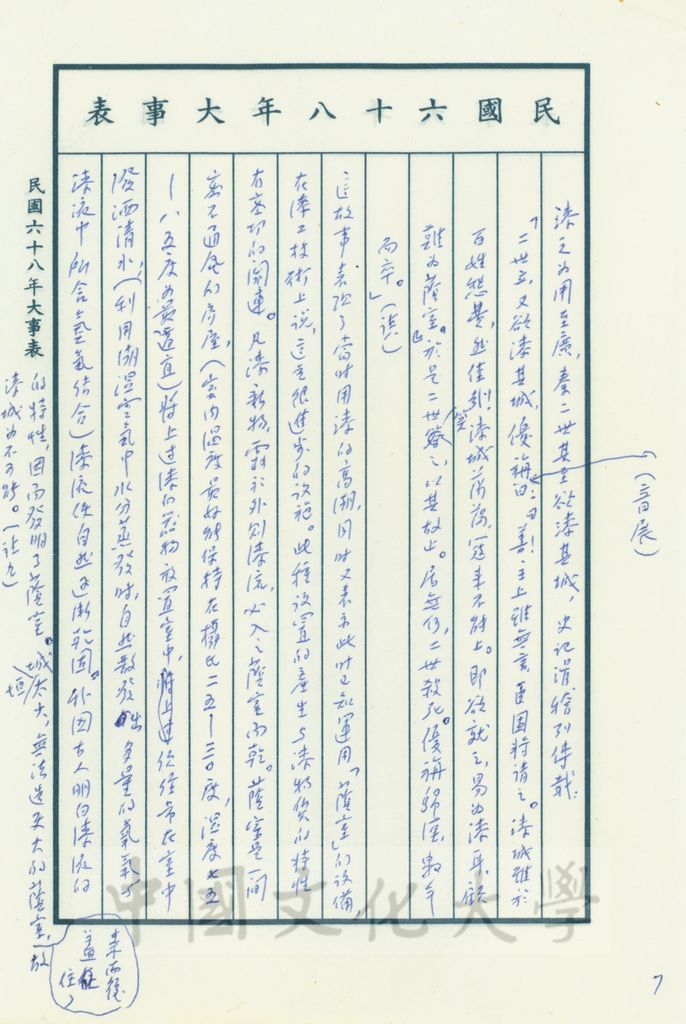 民國六十八年大事表
漆之為用至廣，秦二世甚至欲漆其城，史記滑稽列傳載：
「二世立，又欲漆其城，優旃曰：曰善！主上雖無言，臣固將請之。漆城雖於
百姓愁費，然佳哉！漆城蕩蕩，寇來不能上。即欲就之，易為漆耳，顧
難為蔭室。」於是二世笑之，以其故止。居無何，二世殺死。優旃歸漢，數年
而卒。」（註）
這故事表現了當時用漆的高潮，同時又表示此時已知運用「蔭室」的設備，
在漆工技術上說，這是很進步的設施。此種設置的產生與漆物質的特性
有密切的關連。凡漆新物，需於外刷漆流，必入之蔭室而乾。蔭室是一間
密不通風的房屋，（室內溫度最好能保持在攝氏二五—三〇度，濕度七五
—八五度為最適宜）將上過漆的器物放置室中，須經常在室中
潑洒清水，（利用潮濕空氣中水分蒸發時，自然散發出多量的氧氣，與
漆液中所含氧氣結合）漆液使自然逐漸乾固。外因古人明白漆液的
的特性，因而發明了蔭室。城垣太大，無法造更大的蔭室，故
漆城為不可能。（註九）
（音展）
來而後
蓋住
民國六十八年大事表
中國文化大學
7